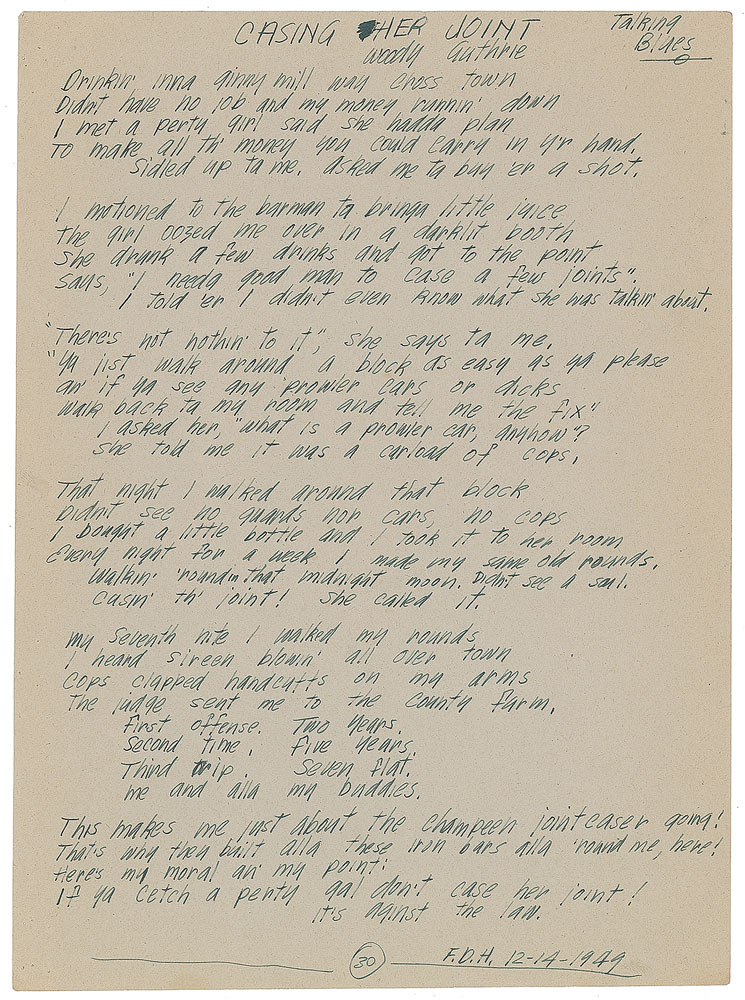 CASING HER JOINT
Talking
Blues
Woody Guthrie
Drinkin' inna ginny mill way cross town
Didn't have no job and my money runnin' down
I met a perty girl said she hadda plan
To make all th' money you could carry in y'r hand.
Sidled up ta me. Asked me ta buy 'er a shot.
I motioned to the barman ta bringa little juice
The girl oozed me over in a darklit booth
She drunk a few drinks and got to the point
Says, "I needa good man to case a few joints".
I told 'er I didn't even know what she was talkin' about.
"There's not nothin' to it", she says ta me.
"Ya jist walk around a block as easy as ya please
an' if ya see any prowler cars or dicks
Walk back ta my room and tell me the fix"
I asked her, "what is a prowler car, anyhow"?
She told me it was a carload of cops.
That night I walked around that block
Didn't see no guards nor cars, no cops
I bought a little bottle and I took it to her room
Every night for a week I made my same old rounds.
Walkin' 'roundin that midnight moon. Didn't see a soul.
Casin' th' joint! She called it.
My seventh nite I walked my rounds
I heard sireen blowin' all over town
Cops clapped handcuffs on my arms
The judge sent me to the County Farm.
First offense. Two years.
Second time. Five years.
Third trip. Seven flat.
Me and alla my buddies.
This makes me just about the champeen jointcaser going!
That's why they built alla these iron bars alla 'round me, here!
Here's my moral an' my point:
If ya cetch a perty gal don't case her joint!
It's aginst the law.
30
F.D.H. 12-14-1949